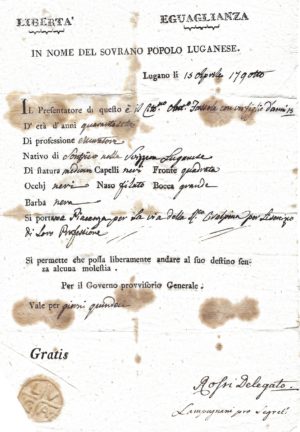 LIBERTA' EGUAGLIANZA
IN NOME DEL SOVRANO POPOLO LUGANESE.
Lugano li 15 Aprile 179 otto
IL Presentatore di questo è il
D' età d' anni
Di professione
Nativo di nella Luganese
Di statura Capelli neri Fronte quadrata
Occhj neri Naso filato Bocca grande
Barba nera
Si porta a Piacenza per la via della per
di Loro Professione
Si permette che possa liberamente andare al suo destino sen
za alcuna molestia.
Per il Governo provvisorio Generale.
Vale per giorni quindeci
Gratis
Rossi Delegato.
pro Segret.